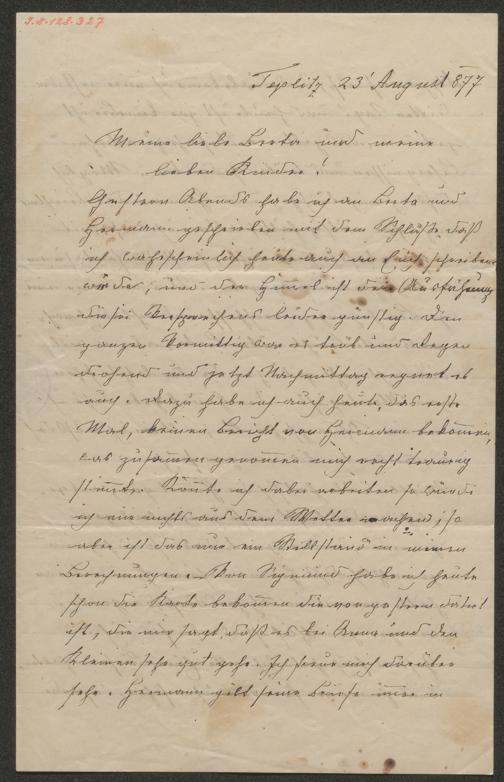 J.N. 128.327
Teplitz 23' August 877
Meine liebe Berta und meine
lieben Kinder!
Gestern Abends habe ich an Berta und
Hermann geschrieben mit dem Schluße, daß
ich wahrscheinlich heute auch an Euch schreiben
würde, und der Himmel ist der Ausführung
dieses Versprechens leider günstig. Den
ganzen Vormittag war es trüb und Regen
drohend und jetzt Nachmittag regnet es
auch. Dazu habe ich auch heute, das erste
Mal, keinen Bericht von Hermann bekommen,
was zusammen genommen mich recht traurig
stimmt. Könnte ich dabei arbeiten so würde
ich mir nichts aus dem Wetter machen, so
aber ist das nur ein Stillstand in meinen
Berechnungen. Von Sigmund habe ich heute
schon die Karte bekommen die von gestern datirt
ist, die mir sagt, daß es bei Anna und den
Kleinen sehr gut gehe. Ich freue mich darüber
sehr. Hermann gibt seine Briefe immer in